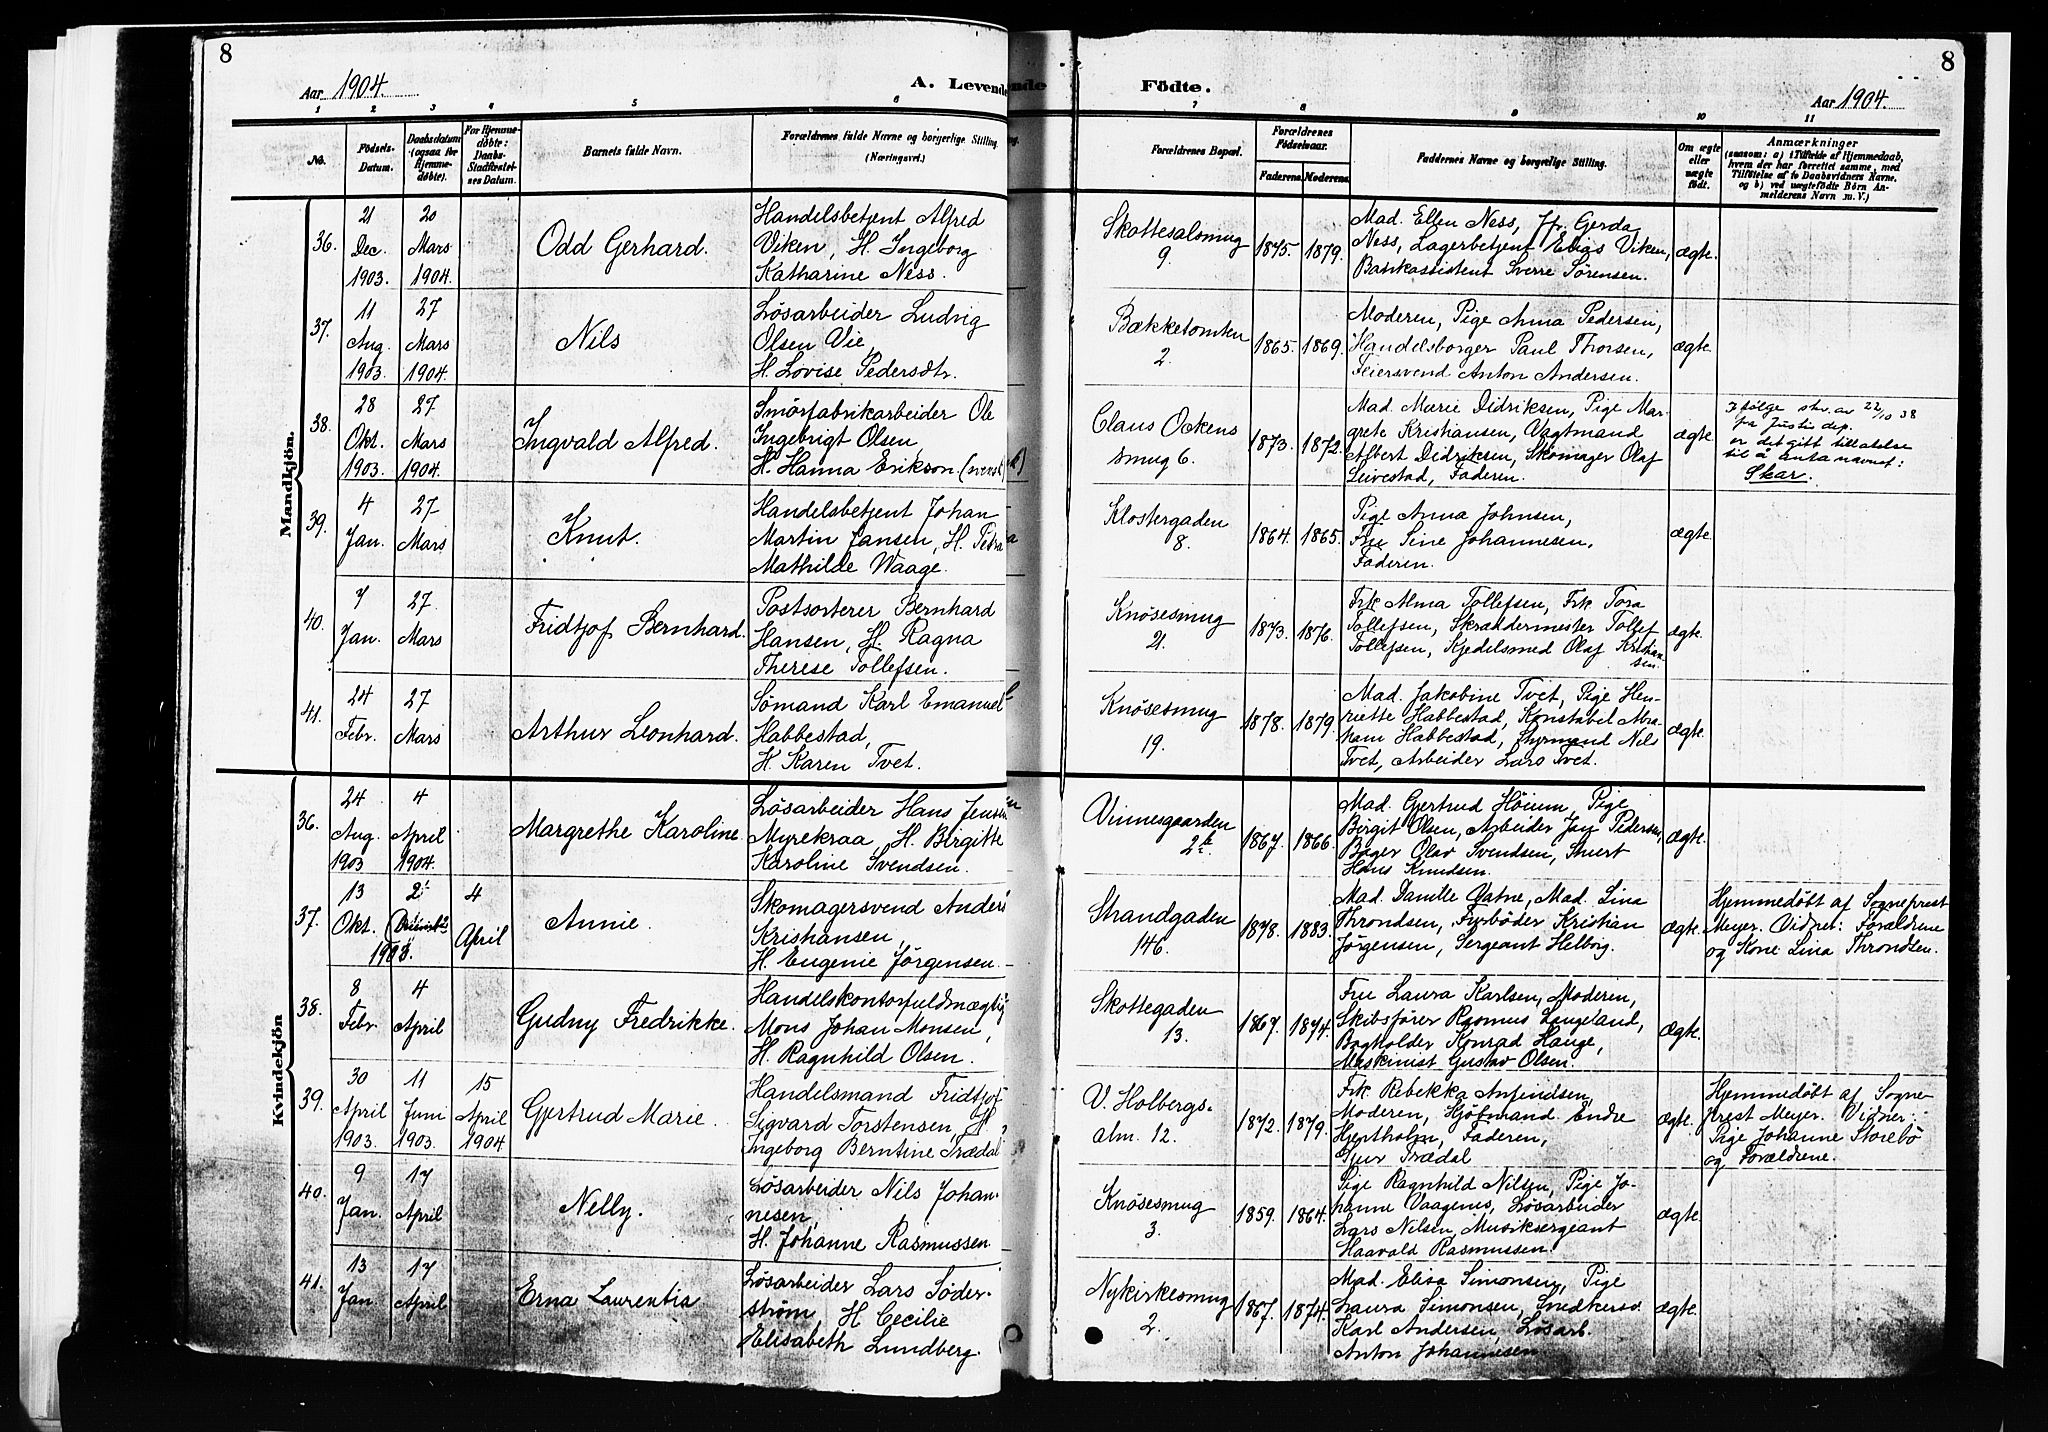 8
Aar 1904.
A. Levende
1 2 3 4 5 6
No.
Födsels-
Datum.
Daabsdatum
(ogsaa for
Hjemme-
döbte).
For Hjemme-
döbte:
Daabs-
Stadfæstel-
ses Datum.
Barnets fulde Navn.
Forældrenes fulde Navne og borgerlige Stilling.
(Næringsvei.)
Mandkjön.
36.
21
Dec.
1903.
20
Mars
1904.
Odd Gerhard.
Handelsbetjent Alfred
Viken, H. Ingeborg
Katharine Ness.
37.
11
Aug.
1903.
27
Mars
1904.
Nils
Løsarbeider Ludvig
Olsen Vie,
H. Lovise Pedersdtr.
38.
28
Okt.
1903.
27
Mars
1904.
Ingvald Alfred.
Smørfabrikarbeider Ole
Ingebrigt Olsen
H. Hanna Erikson (svensk)
39.
4
Jan.
27
Mars
Knut.
Handelsbetjent Johan
Martin Jansen, H. Petra
Mathilde Waage.
40.
7
Jan.
27
Mars
Fridtjof Bernhard.
Postsorterer Bernhard
Hansen, H. Ragna
Therese Tollefsen.
41.
24
Febr.
27
Mars
Arthur Leonhard.
Sømand Karl Emanuel
Habbestad,
H. Karen Tvet.
Kvindekjön
36.
24
Aug.
1903
4
April
1904.
Margrethe Karoline.
Løsarbeider Hans Jensen
Myrekraa, H. Birgitte
Karoline Svendsen.
37.
13
Okt.
2
1903.
4
April
Annie.
Skomagersvend Anders
Kristiansen,
H. Eugenie Jørgensen.
38.
8
Febr.
4
April
Gudny Fredrikke.
Handelskontorfuldmægtig
Mons Johan Monsen,
H. Ragnhild Olsen.
39.
30
April
1903.
11
Juni
1903.
15
April
1904
Gertrud Marie.
Handelsmand Fridtjof
Sigvard Torstensen, H.
Ingeborg Berntine Trædal
40.
9
Jan.
17
April
Nelly.
Løsarbeider Nils Johan-
nesen,
H. Johanne Rasmussen
41.
13
Jan.
17
April
Erna Laurentia
Løsarbeider Lars Søder-
strøm, H. Cecilie
Elisabeth Lundberg.
8
Födte.
Aar 1904.
7 8 9 10 11
Forældrenes Bopæl.
Forældrenes
Födselsaar.
Faderens. Moderens.
Faddernes Navne og borgerlige Stilling.
Om ægte
eller
uægte
födt.
Anmærkninger
(saasom: a) i Tilfælde af Hjemmedaab,
hvem der har forrettet samme, med
Tilföielse af to Daabsvidners Navne.
og b) ved uægtefödte Börn An-
melderens Navn m. V.)
Skottesalsmug
9.
1875. 1879.
Mad. Ellen Ness, Fr. Gerda
Ness, Lagerbetjent Elias Viken,
Bankassistent Sverre Sørensen.
ægte.
Bækketomten
2.
1865. 1869.
Moderen, Pige Anna Pedersen,
Handelsborger Paul Thorsen,
Feiersvend Anton Andersen.
ægte.
Claus Ockens
smug 6.
1873. 1872.
Mad. Marie Didriksen, Pige Mar-
grete Kristiansen, Vagtmand
Albert Didriksen, Skomager Olaf
Leivestad, Faderen.
ægte.
Ifølge skr. av 22/10 38
fra Justis dep.
er det gitt tillatelse
til å anta navnet:
Skar.
Klostergaden
8.
1864. 1865.
Pige Anna Johnsen,
Fru Sine Johannesen,
Faderen.
ægte.
Knøsesmug
21.
1873. 1876.
Frk. Alma Tollefsen, Frk. Tora
Tollefsen, Skræddermester Tollef
Tollefsen, Kjedelsmed Olaf Kristian-
sen.
ægte.
Knøsesmug
19.
1878. 1879.
Mad. Jakobine Tvet, Pige Hen-
riette Habbestad, Konstabel Abra-
ham Habbestad, Styrmand Nils
Tvet, Arbeider Lars Tvet.
ægte.
Vinnesgaarden
2b.
1867. 1866.
Mad. Gertrud Høium, Pige
Birgit Olsen, Arbeider Jan Pedersen,
Bager Olav Svendsen, Snert
Hans Knudsen.
ægte.
Strandgaden
146.
1878. 1883.
Mad. Danile Vatne, Mad. Lina
Throndsen, Fyrbøder Kristian
Jørgensen, Sergeant Helbrig.
ægte.
Hjemmedøbt af Sogneprest
Meyer. Vidner: Forældrene
og Kone Lina Throndsen.
Skottegaden
13.
1867. 1874.
Fru Laura Karlsen, Moderen,
Skibsfører Rasmus Langeland,
Bogholder Konrad Hauge,
Maskinist Gustav Olsen.
ægte.
V. Holbergs-
alm. 12.
1872. 1879.
Frk. Rebekka Anfindsen,
Moderen, Sjømand Endre
Hertholm, Faderen,
Trædal
ægte.
Hjemmedøbt af Sogne-
prest Meyer. Vidner:
Pige Johanne Storebø
og Forældrene.
Knøsesmug
3.
1859. 1864.
Pige Ragnhild Nilsen, Pige Jo-
hanne Vaagenes, Løsarbeider
Lars Nilsen, Musiksergeant
Haavald Rasmussen.
ægte.
Nykirkesmug
2.
1867. 1874.
Mad. Elisa Simonsen, Pige
Laura Simonsen, Snedkersv.
Karl Andersen, Løsarb.
Anton Johannesen.
ægte.